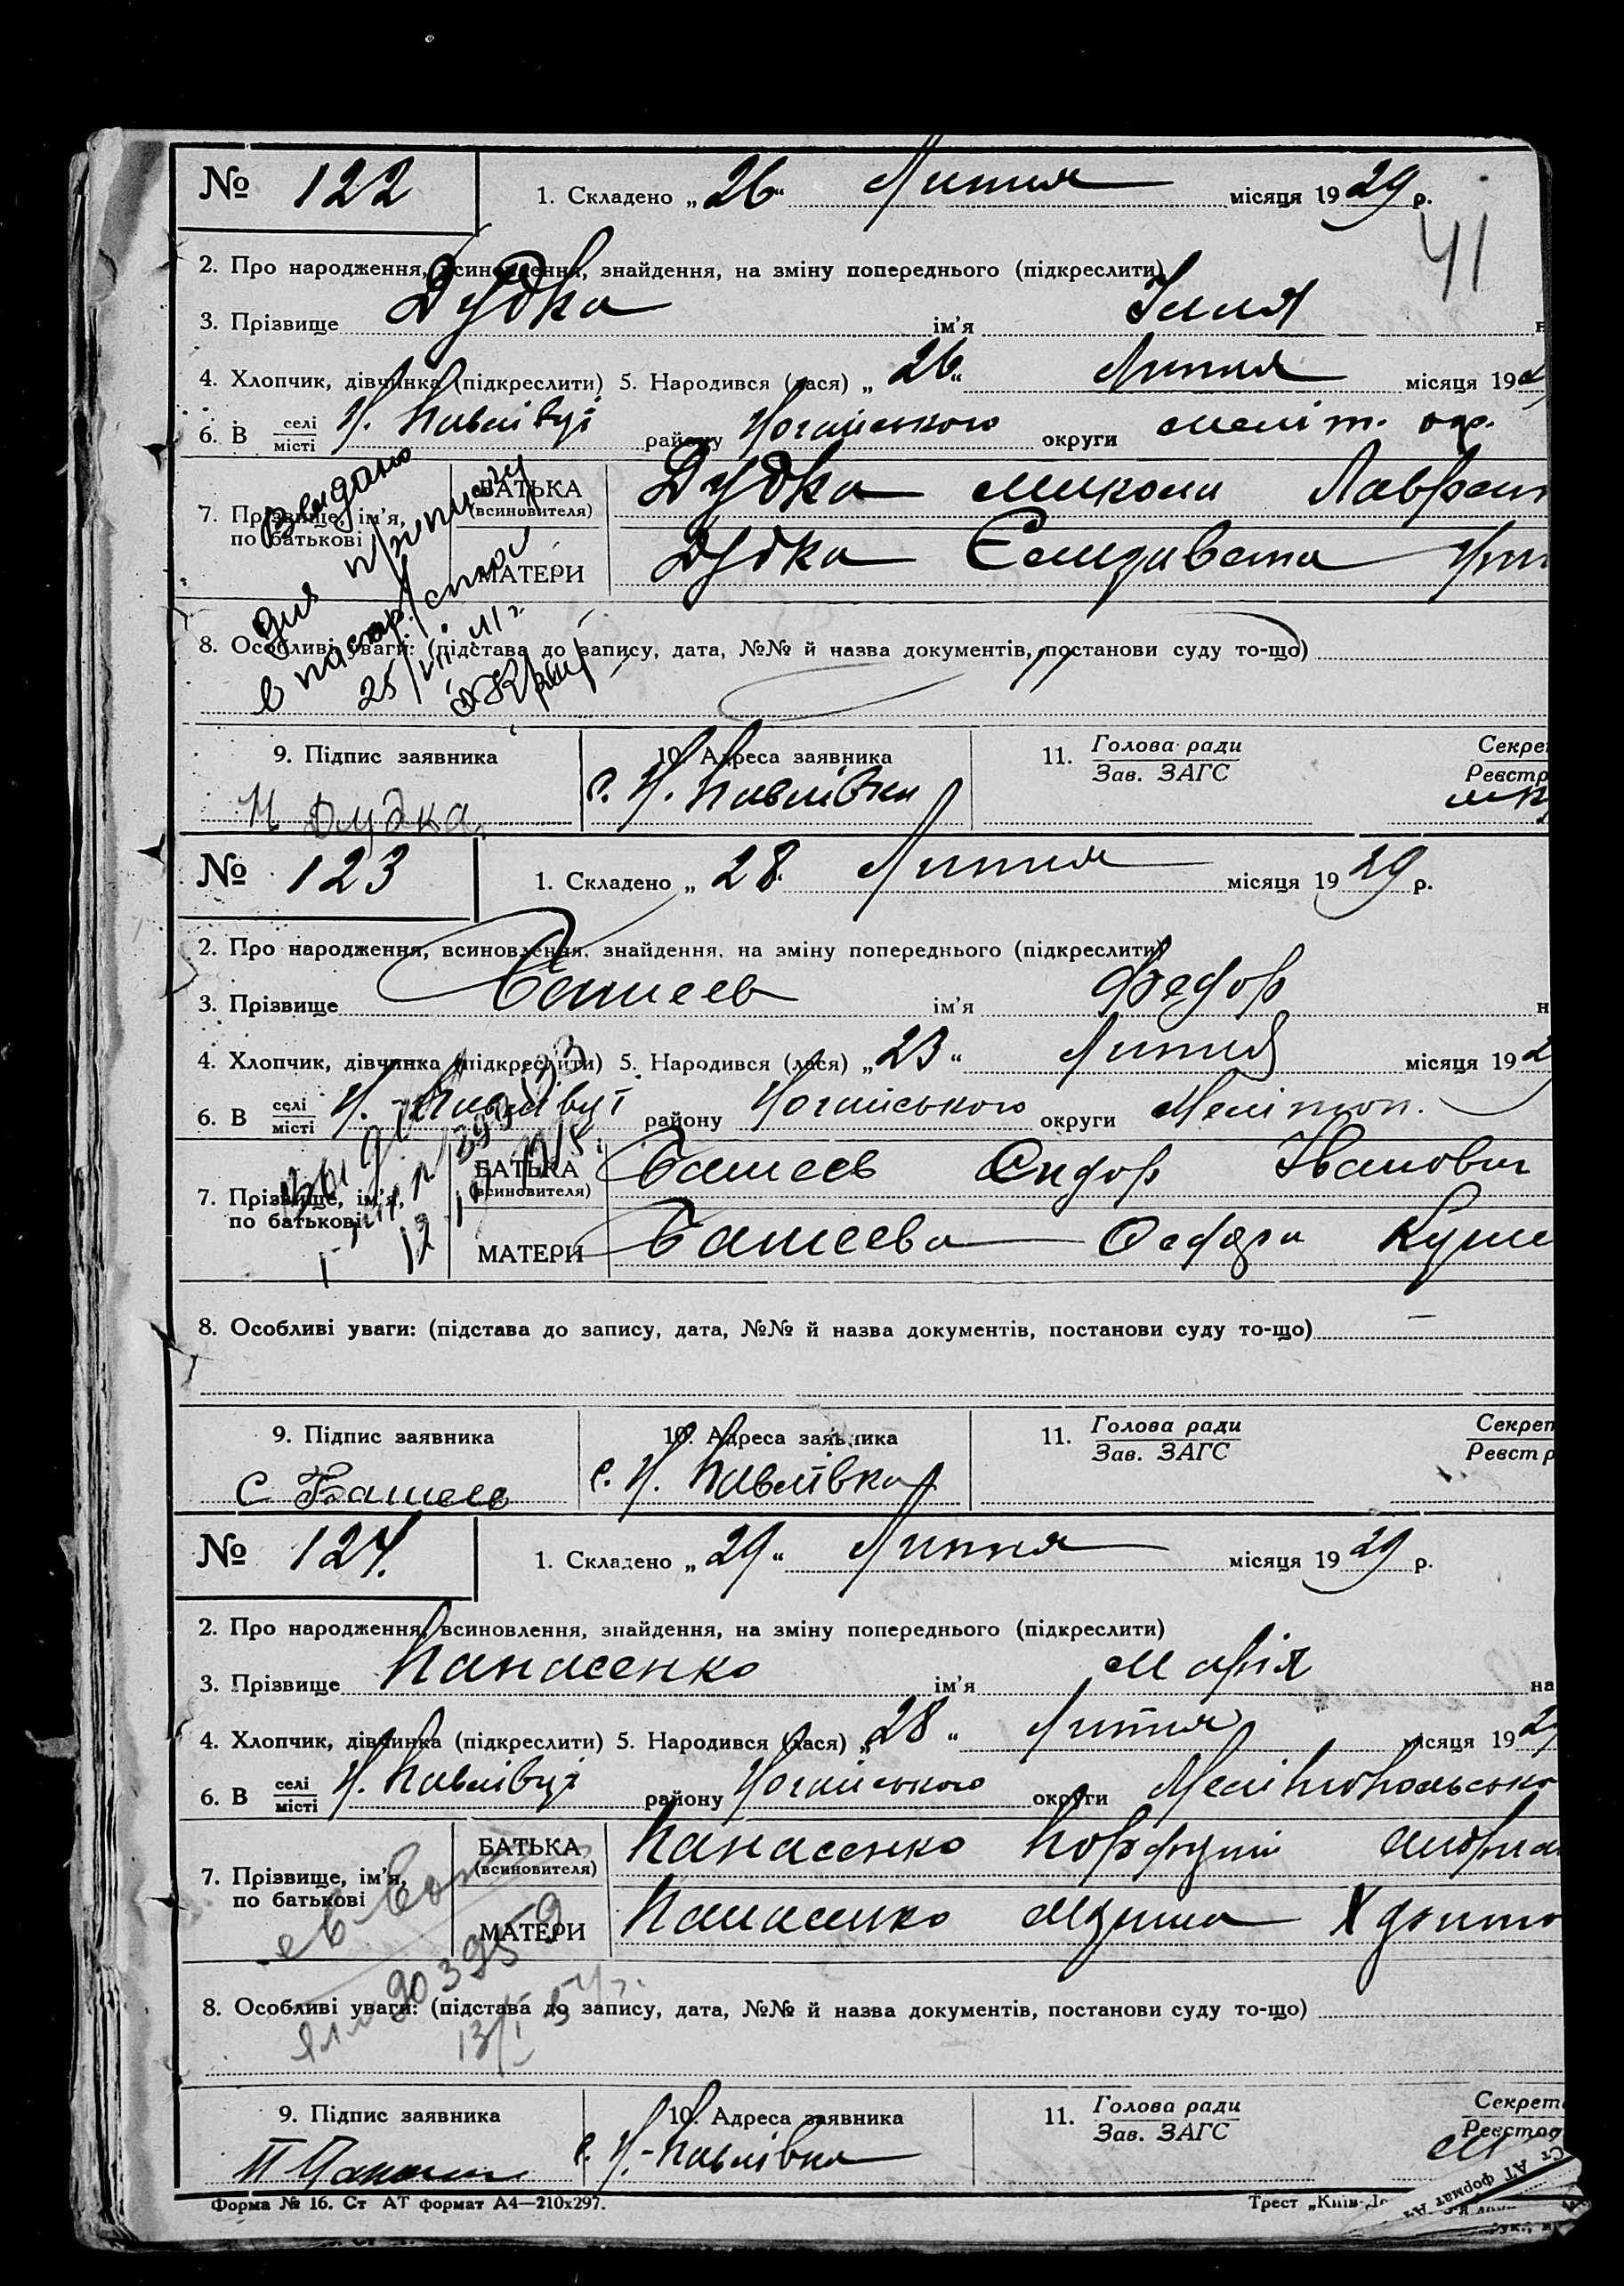 № 122
1. Складено „26“ Липня місяця 1929 р.
41
2. Про народження, всиновлення, знайдення, на зміну попереднього (підкреслити)
3. Прізвище Дудка ім'я Ілля н
4. Хлопчик, дівчинка (підкреслити) 5. Народився (лася) „26“ Липня місяця 192
6. В селі/місті Н. Павлівці району Ногайського округи Меліт. окр.
7. Прізвище, ім'я, по батькові
БАТЬКА (всиновителя) Дудка Микола Лаврен
МАТЕРИ Дудка Єлизавета
Выдано
для
в паспор/стол
25/VII 41 г.
8. Особливі уваги: (підстава до запису, дата, №№ й назва документів, постанови суду то-що)
9. Підпис заявника
Н Дудка
10. Адреса заявника
с. Н. Павлівка
11. Голова ради
Зав. ЗАГС
Секре
Реєстр
№ 123
1. Складено „28“ Липня місяця 1929 р.
2. Про народження, всиновлення, знайдення, на зміну попереднього (підкреслити)
3. Прізвище Башеев ім'я Федор н
4. Хлопчик, дівчинка (підкреслити) 5. Народився (лася) „23“ Липня місяця 192
6. В селі/місті Н.-Павлівці району Ногайського округи Мелітоп.
7. Прізвище, ім'я, по батькові
БАТЬКА (всиновителя) Башеев Сидор Іванович
МАТЕРИ Башеева
8. Особливі уваги: (підстава до запису, дата, №№ й назва документів, постанови суду то-що)
9. Підпис заявника
С Башеев
10. Адреса заявника
с. Н. Павлівка
11. Голова ради
Зав. ЗАГС
Секрет
Реєстр
№ 124.
1. Складено „29“ Липня місяця 1929 р.
2. Про народження, всиновлення, знайдення, на зміну попереднього (підкреслити)
3. Прізвище Панасенко ім'я Марія на
4. Хлопчик, дівчинка (підкреслити) 5. Народився (лася) „28“ Липня місяця 192
6. В селі/місті Н. Павлівці району Ногайського округи Мелітопольсько
7. Прізвище, ім'я, по батькові
БАТЬКА (всиновителя) Панасенко
МАТЕРИ Панасенко
903959
8. Особливі уваги: (підстава до запису, дата, №№ й назва документів, постанови суду то-що)
9. Підпис заявника
10. Адреса заявника
с. Н.-Павлівка
11. Голова ради
Зав. ЗАГС
Секрет
Реєстр
Форма № 16. Ст АТ формат А4—210x297.
Трест „Київ-Д